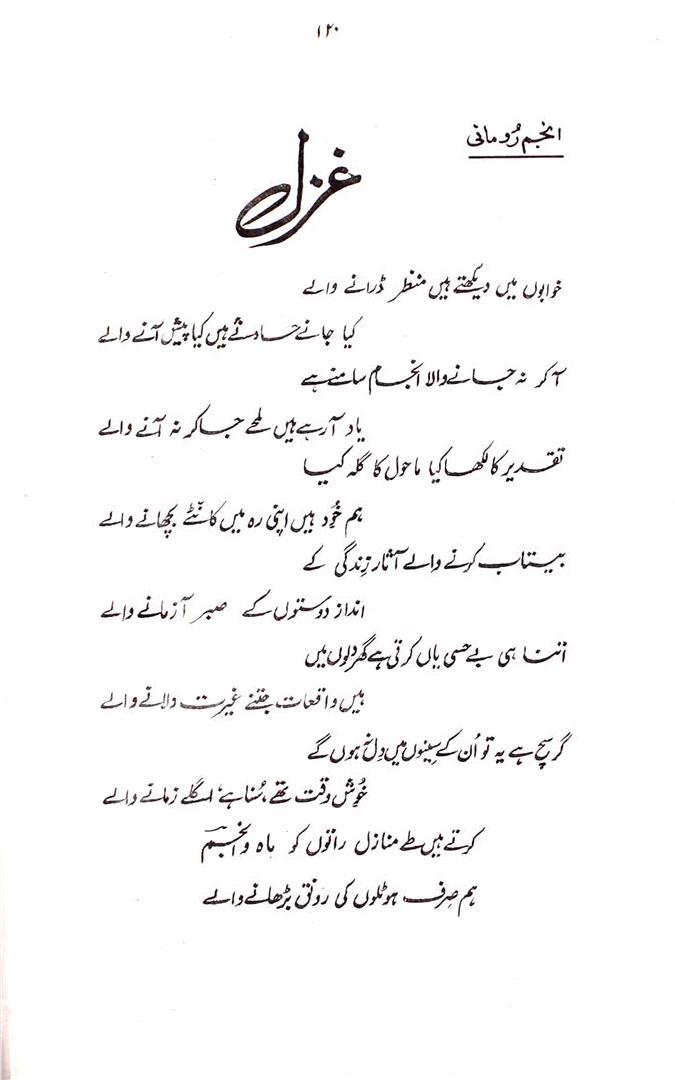 ۱۲۰
انجم رُومانی
غزل
خوابوں میں دیکھتے ہیں منظر ڈرانے والے
کیا جانے حادثے ہیں کیا پیش آنے والے
آ کر نہ جانے والا انجام سامنے ہے
یاد آرہے ہیں لمحے جا کر نہ آنے والے
تقدیر کا لکھا کیا ماحول کا گلہ کیا
ہم خُود ہیں اپنی رہ میں کانٹے بچھانے والے
بیتاب کرنے والے آثار زِندگی کے
انداز دوستوں کے صبر آزمانے والے
اتنا ہی بے حسی یاں کرتی ہے گھر دلوں میں
ہیں واقعات جتنے غیرت دلانے والے
گر سچ ہے یہ تو اُن کے سِینوں میں دِل نہ ہوں گے
خُوش وقت تھے، سُنا ہے، اگلے زمانے والے
کرتے ہیں طے منازل راتوں کو ماہ و انجمؔ
ہم صِرف ہوٹلوں کی رونق بڑھانے والے